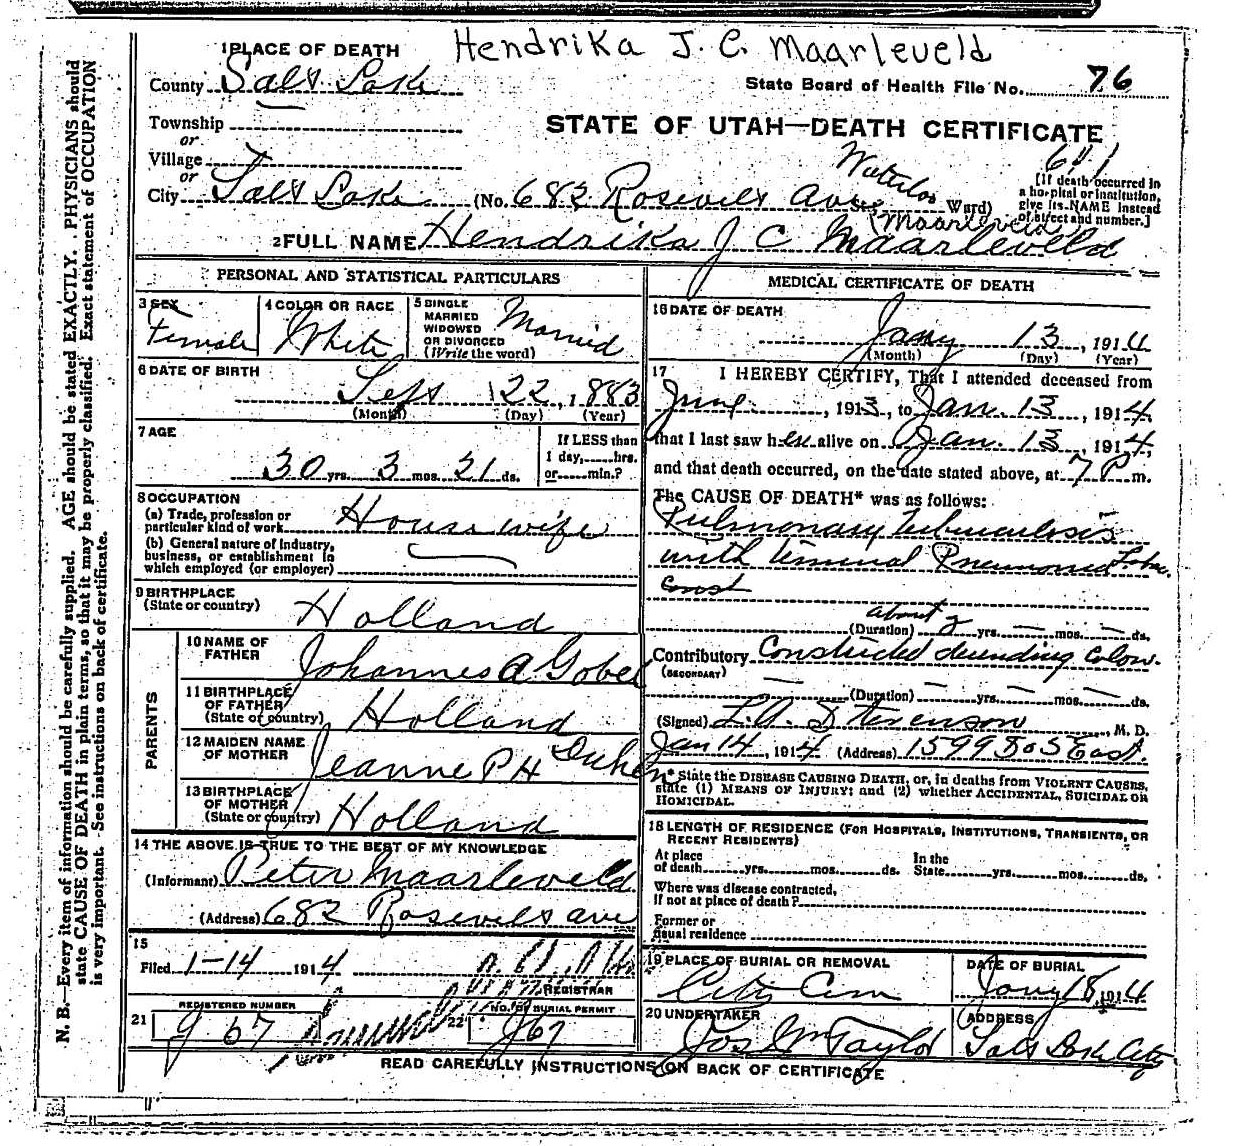 Hendrika J. C. Maarleveld
1 PLACE OF DEATH
County Salt Lake
State Board of Health File No. 76
Township
or
Village
or
STATE OF UTAH—DEATH CERTIFICATE
City Salt Lake (No. 682 Rosevelt Ave St; Waterloo Ward)
641
[If death occurred in
a hospital or institution,
give its NAME instead
of street and number.]
(Maarleveld)
2 FULL NAME Hendrika J C Maarleveld
PERSONAL AND STATISTICAL PARTICULARS
3 SEX
Female
4 COLOR OR RACE
White
5 SINGLE
MARRIED
WIDOWED
OR DIVORCED
(Write the word)
Married
6 DATE OF BIRTH
Sept 22, 1883
(Month) (Day) (Year)
7 AGE
30 yrs. 3 mos. 21 ds.
If LESS than
1 day,......hrs.
or......min.?
8 OCCUPATION
(a) Trade, profession or
particular kind of work House wife
(b) General nature of Industry,
business, or establishment in
which employed (or employer)
9 BIRTHPLACE
(State or country)
Holland
PARENTS
10 NAME OF
FATHER
Johannes A Gobel
11 BIRTHPLACE
OF FATHER
(State or country)
Holland
12 MAIDEN NAME
OF MOTHER
Jeanne P H
13 BIRTHPLACE
OF MOTHER
(State or country)
Holland
14 THE ABOVE IS TRUE TO THE BEST OF MY KNOWLEDGE
(Informant) Peter Maarleveld
(Address) 682 Rosevelt ave
15
Filed 1-14 1914
REGISTRAR
REGISTERED NUMBER
21 J 67
NO. OF BURIAL PERMIT
22 J67
MEDICAL CERTIFICATE OF DEATH
16 DATE OF DEATH
Jany 13, 1914
(Month) (Day) (Year)
17 I HEREBY CERTIFY, That I attended deceased from
June, 1913, to Jan. 13, 1914,
that I last saw her alive on Jan. 13, 1914,
and that death occurred, on the date stated above, at 7 P m.
The CAUSE OF DEATH* was as follows:
Pulmonary Tuberculosis
with terminal Pneumonia
about 2
(Duration) yrs. — mos. — ds.
Contributory Constricted decending Colon.
(SECONDARY)
(Duration) — yrs. — mos. — ds.
(Signed) L.A. Stevenson, M. D.
Jan 14, 1914 (Address) 1599 So 5 East.
* State the DISEASE CAUSING DEATH, or, in deaths from VIOLENT CAUSES,
state (1) MEANS OF INJURY; and (2) whether ACCIDENTAL, SUICIDAL OR
HOMICIDAL.
18 LENGTH OF RESIDENCE (FOR HOSPITALS, INSTITUTIONS, TRANSIENTS, OR
RECENT RESIDENTS)
At place
of death......yrs......mos......ds.
In the
State......yrs......mos......ds.
Where was disease contracted,
If not at place of death?
Former or
usual residence
19 PLACE OF BURIAL OR REMOVAL
City Cem
DATE OF BURIAL
Jany 18, 1914
20 UNDERTAKER
Jos Wm Taylor
ADDRESS
Salt Lake City
READ CAREFULLY INSTRUCTIONS ON BACK OF CERTIFICATE
N. B.—Every item of information should be carefully supplied. AGE should be stated EXACTLY. PHYSICIANS should
state CAUSE OF DEATH in plain terms, so that it may be properly classified. Exact statement of OCCUPATION
is very important. See instructions on back of certificate.